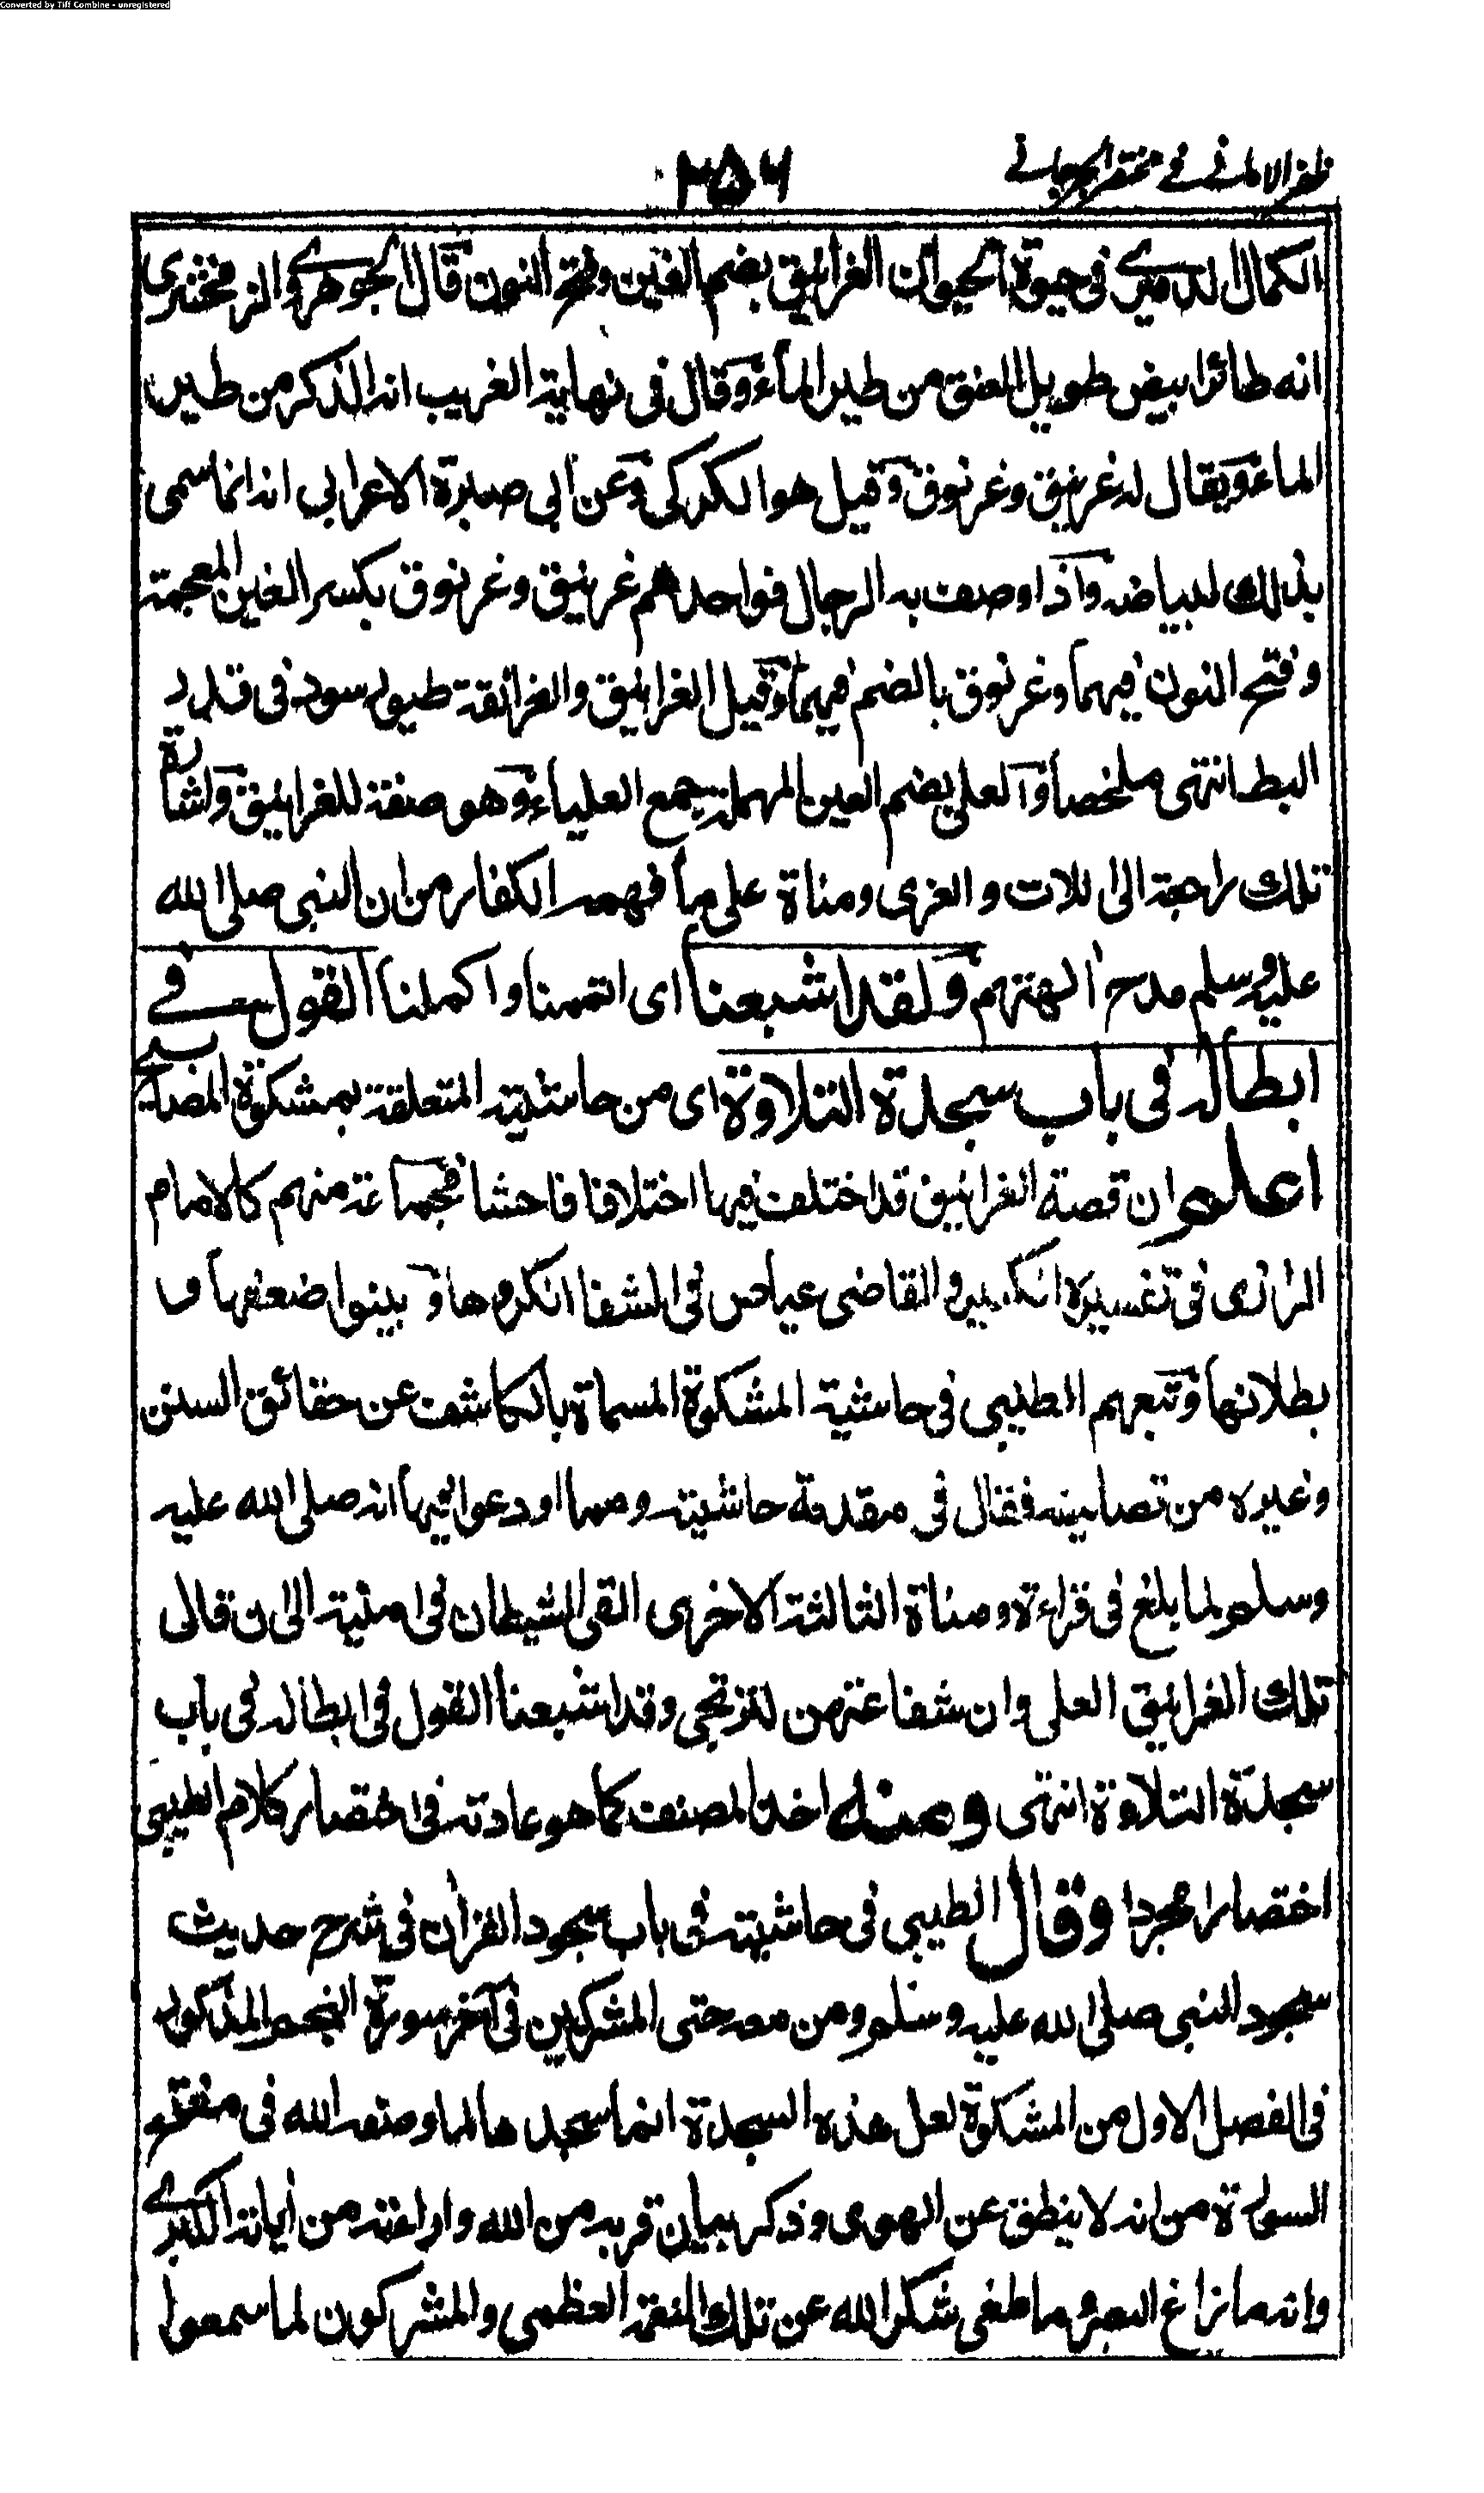 Converted by Tiff Combine - unregistered
ظفر الامانے فے مختصر الجرجانے
۲۵۶
الكمال الدميرى فى حيوة الحيوان الغرانيق بضم الغين وفتح النون قال الجوهرى والزمخشرى
انه طائر ابيض طويل العنق من طير الماء وقال فى نهاية الغريب انه الذكر من طير
الماء ويقال له غرنيق وغرنوق وقيل هو الكركى وعن ابى صبرة الاعرابى انه انما سمى
بذلك لبياضه واذا وصف به الرجال فواحدهم غرنيق وغرنوق بكسر الغين المعجمة
وفتح النون فيهما وغرنوق بالضم فيهما وقيل الغرانيق والغرانقة طيور سود فى قدر
البط انتهى ملخصا والعلى بضم العين المهملة جمع العلياء وهو صفة للغرانيق واشارة
تلك راجعة الى اللات والعزى ومناة على ما فهمه الكفار من ان النبى صلى الله
عليه وسلم مدح الهتهم ولقد اشبعنا اى اتممنا واكملنا القول فے
ابطاله فى باب سجدة التلاوة اى من حاشيته المتعلقة بمشكوة المصابيح
اعلم ان قصة الغرانيق قد اختلف فيها اختلافا فاحشا فجماعة منهم كالامام
الرازى فى تفسيره الكبير والقاضى عياض فى الشفا انكروها وبينوا ضعفها و
بطلانها وتبعهم الطيبى فى حاشية المشكوة المسماة بالكاشف عن حقائق السنن
وغيره من تصانيفه فقال فى مقدمة حاشيته ومما اودعوا فيها انه صلى الله عليه
وسلم لما بلغ فى قراءة ومناة الثالثة الاخرى القى الشيطان فى امنيته الى ان قال
تلك الغرانيق العلى وان شفاعتهن لترتجى وقد اشبعنا القول فى ابطاله فى باب
سجدة التلاوة انتهى ومنه اخذ المصنف كما هو عادته فى اختصار كلام الطيبى
اختصارا مجردا وقال الطيبى فى حاشيته فى باب سجود القران فى شرح حديث
سجود النبى صلى الله عليه وسلم ومن معه حتى المشركين فى آخر سورة النجم المذكور
فى الفصل الاول من المشكوة لعل هذه السجدة انما سجدها لما وصفه الله فى مفتتح
السورة من انه لا ينطق عن الهوى وذكر بيان قربه من الله واراءته من اياته الكبرے
وانه ما زاغ البصر وما طغى شكر الله عن تلك النعمة العظمى والمشركون لما سمعوا